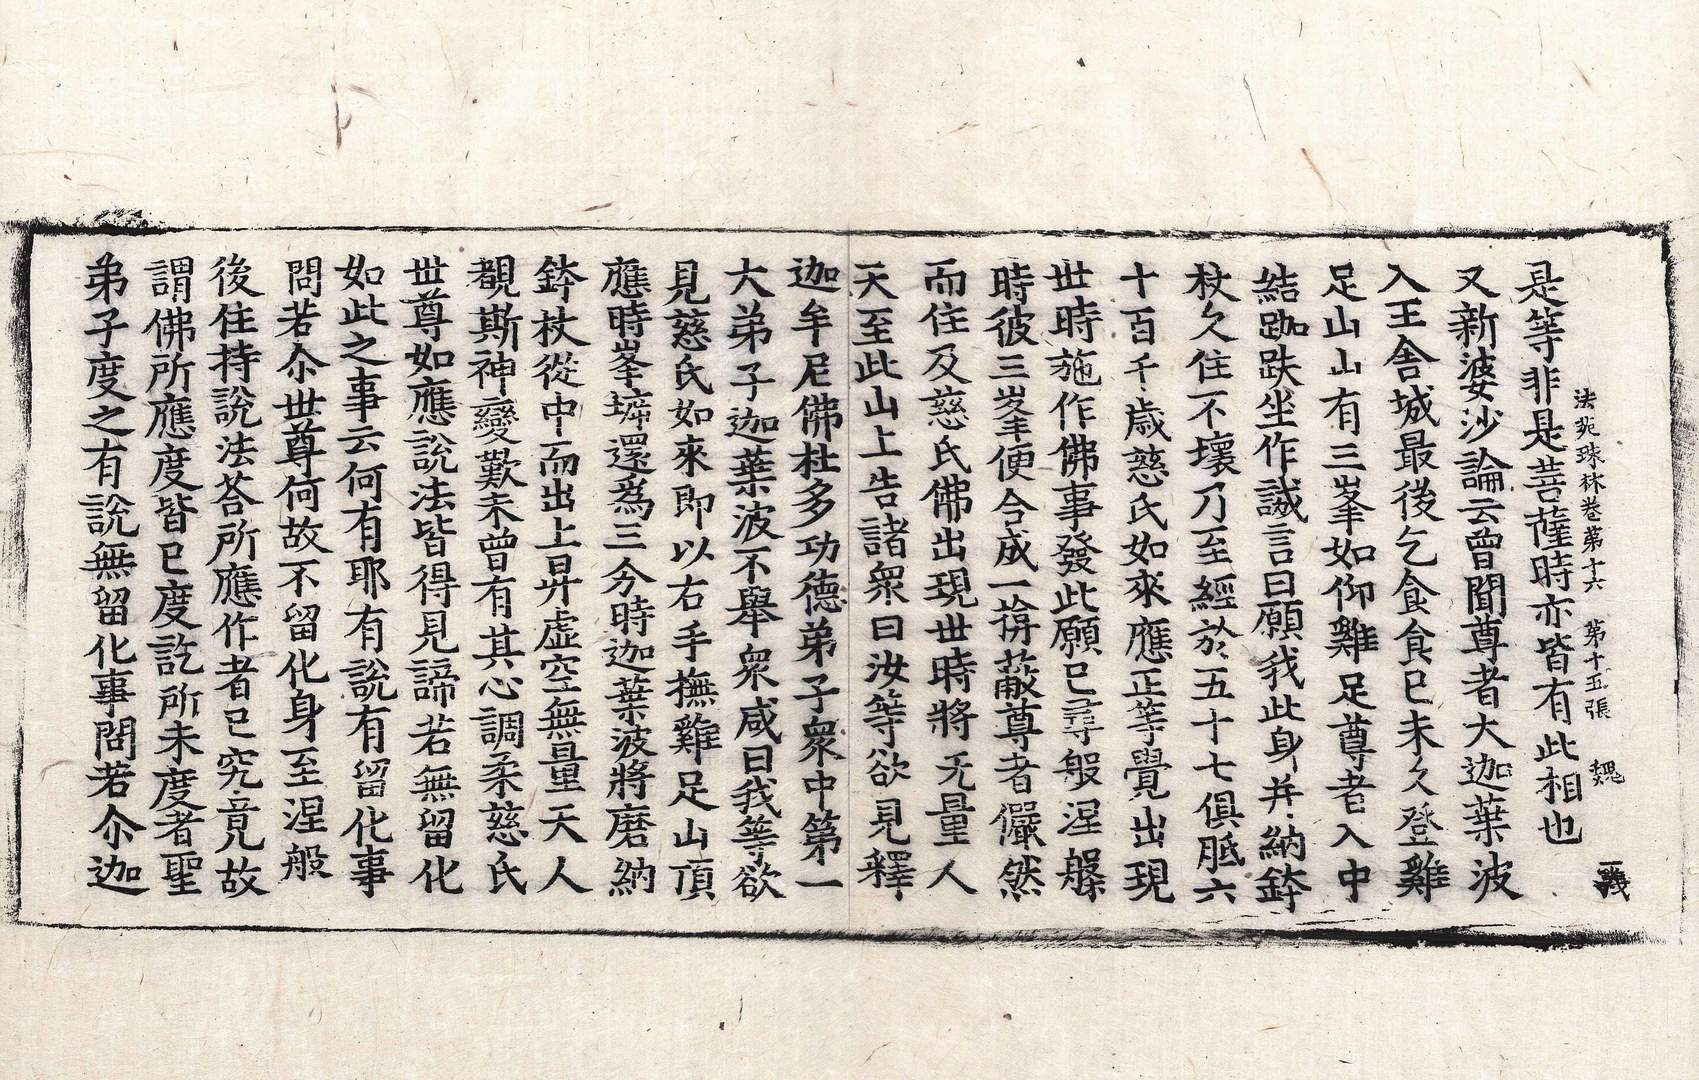 法苑珠林卷第十六　第十五張　魏
是等非是菩薩時亦皆有此相也
又新婆沙論云曾聞尊者大迦葉波
入王舍城最後乞食食已未久登雞
足山山有三峯如仰雞足尊者入中
結跏趺坐作誠言曰願我此身并納鉢
杖久住不壞乃至經於五十七俱胝六
十百千歲慈氏如來應正等覺出現
世時施作佛事發此願已尋般涅槃
時彼三峯便合成一揜蔽尊者儼然
而住及慈氏佛出現世時將无量人
天至此山上告諸衆曰汝等欲見釋
迦牟尼佛杜多功德弟子衆中第一
大弟子迦葉波不舉衆咸曰我等欲
見慈氏如來即以右手撫雞足山頂
應時峯坼還爲三分時迦葉波將磨納
鉢杖從中而出上昇虛空無量天人
覩斯神變歎未曾有其心調柔慈氏
世尊如應說法皆得見諦若無留化
如此之事云何有耶有說有留化事
問若尒世尊何故不留化身至涅般
後住持說法荅所應作者已究竟故
謂佛所應度皆已度訖所未度者聖
弟子度之有說無留化事問若尒迦